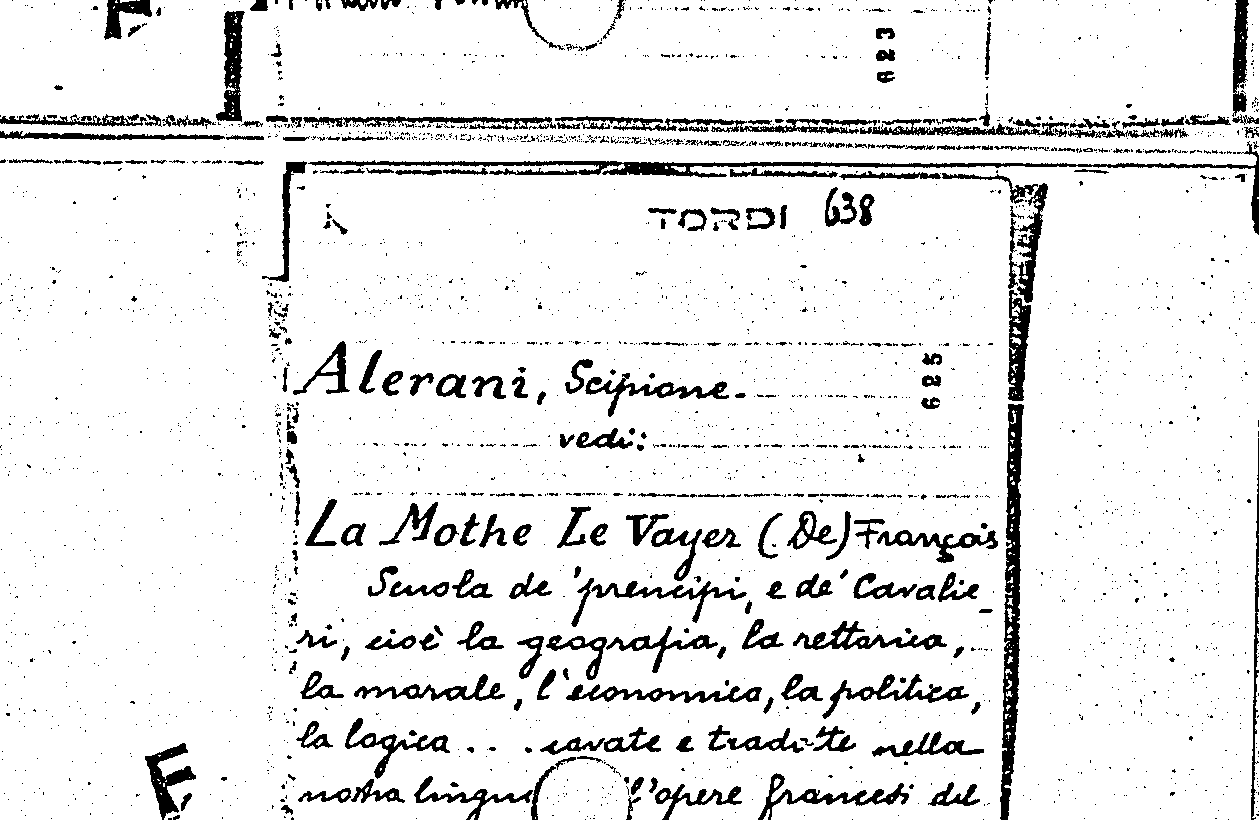 623
TORDI 638
Alerani, Scipione.
625
vedi:
La Mothe Le Vayer (De) François
Scuola de' prencipi, e de' Cavalie-
ri, cioè la geografia, la rettorica,
la morale, l'economica, la politica,
la logica . . . cavate e tradotte nella
nostra lingua l'opere francesi del